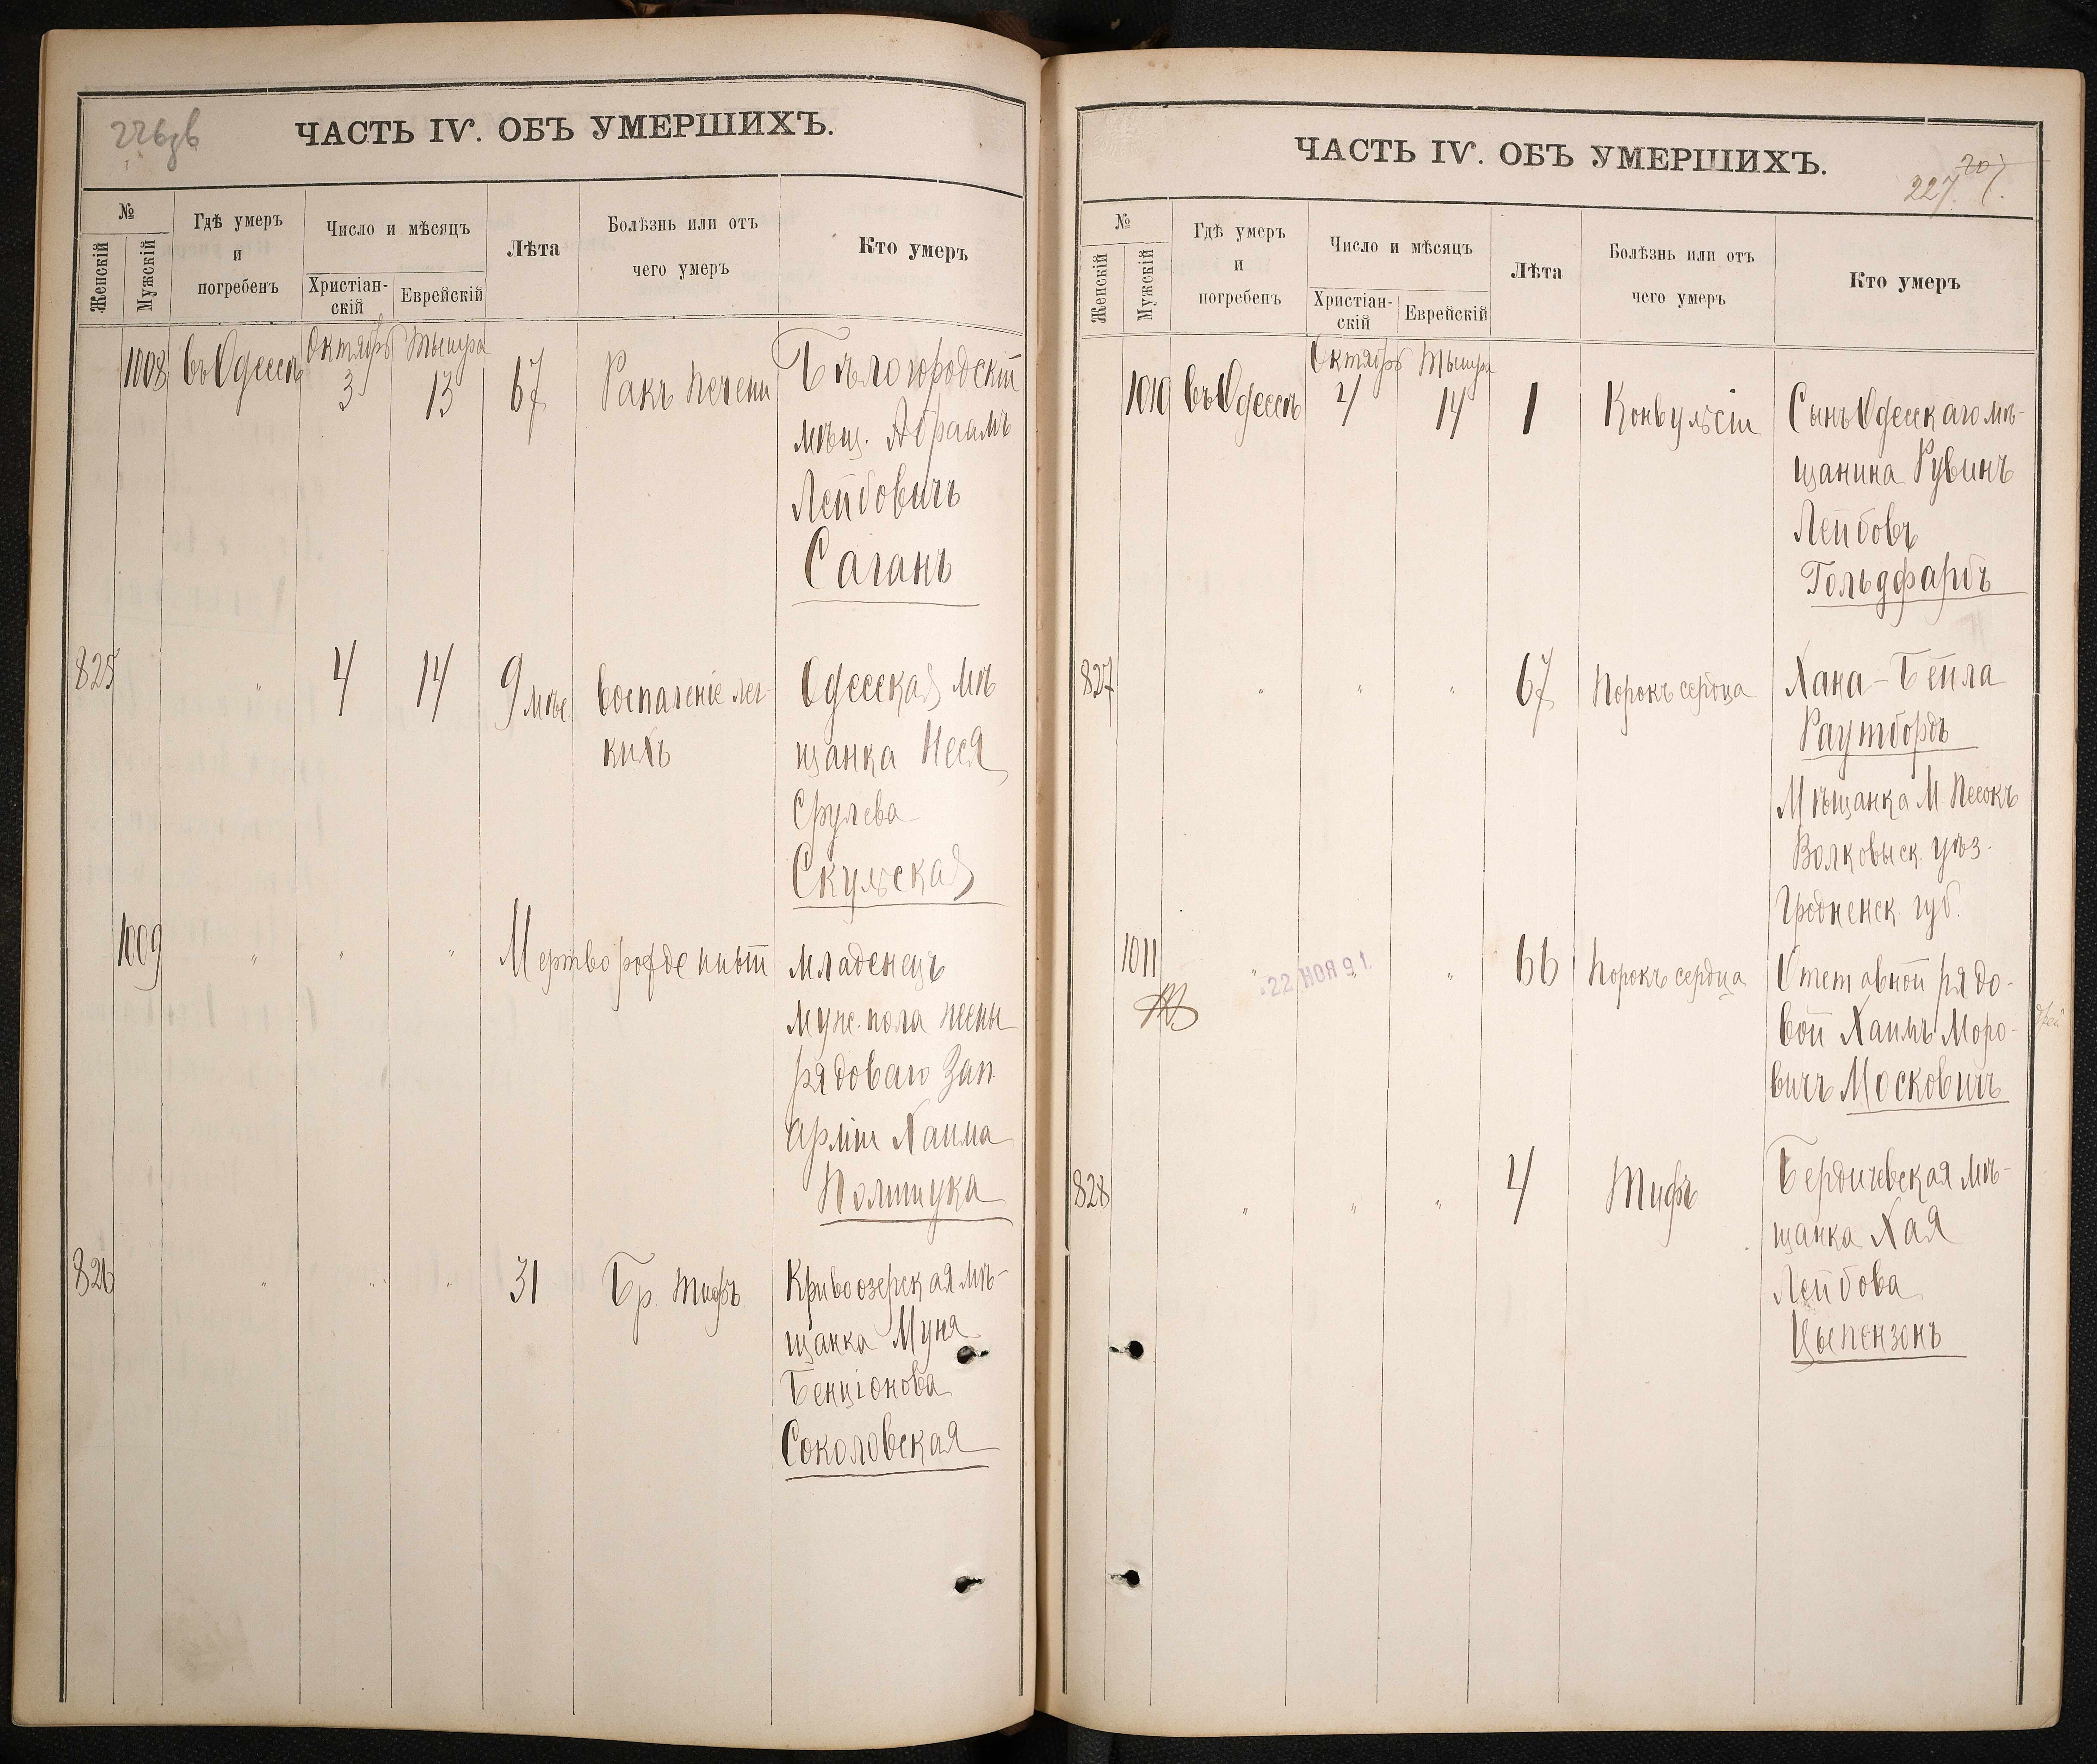 226зв
ЧАСТЬ IV. ОБЪ УМЕРШИХЪ.
№
Женскій
Мужскій
Гдѣ умеръ
и
погребенъ
Число и мѣсяцъ
Христіан-
скій
Еврейскій
Лѣта
Болѣзнь или отъ
чего умеръ
Кто умеръ
1008 въ Одессѣ Октябрь 3 Тишра 13 67 Ракъ печени Бѣлогородскій
мѣщ. Абраамъ
Лейбовичъ
Саганъ
825 " 4 14 9 мѣс. Воспаленіе лег-
кихъ
Одесская мѣ
щанка Неся
Срулева
Скульская
1009 " " " Мертворожденный младенецъ
муж. пола жены
рядоваго Зап.
Арміи Хаима
Полищука
826 " " " 31 Бр. тифъ Кривоозерская мѣ-
щанка Муня
Бенціонова
Соколовская
ЧАСТЬ IV. ОБЪ УМЕРШИХЪ.
207.
227.
№
Женскій
Мужскій
Гдѣ умеръ
и
погребенъ
Число и мѣсяцъ
Христіан-
скій
Еврейскій
Лѣта
Болѣзнь или отъ
чего умеръ
Кто умеръ
1010 въ Одессѣ Октябрь 4 Тишра 14 1 Конвульсіи Сынъ Одесскаго мѣ-
щанина Рувинъ
Лейбовъ
Гольдфарбъ
827 " " " 67 Порокъ сердца Хана-Бейла
Раутбордъ
Мѣщанка М. Песокъ
Волковыск. уѣз.
Гродненск. губ.
1011 " 22 НОЯ 91 " 66 Порокъ сердца Отставной рядо-
вой Хаимъ Моро-
вичъ Московичъ
828 " " " 4 Тифъ Бердичевская мѣ-
щанка Хая
Лейбова
Цыпензонъ